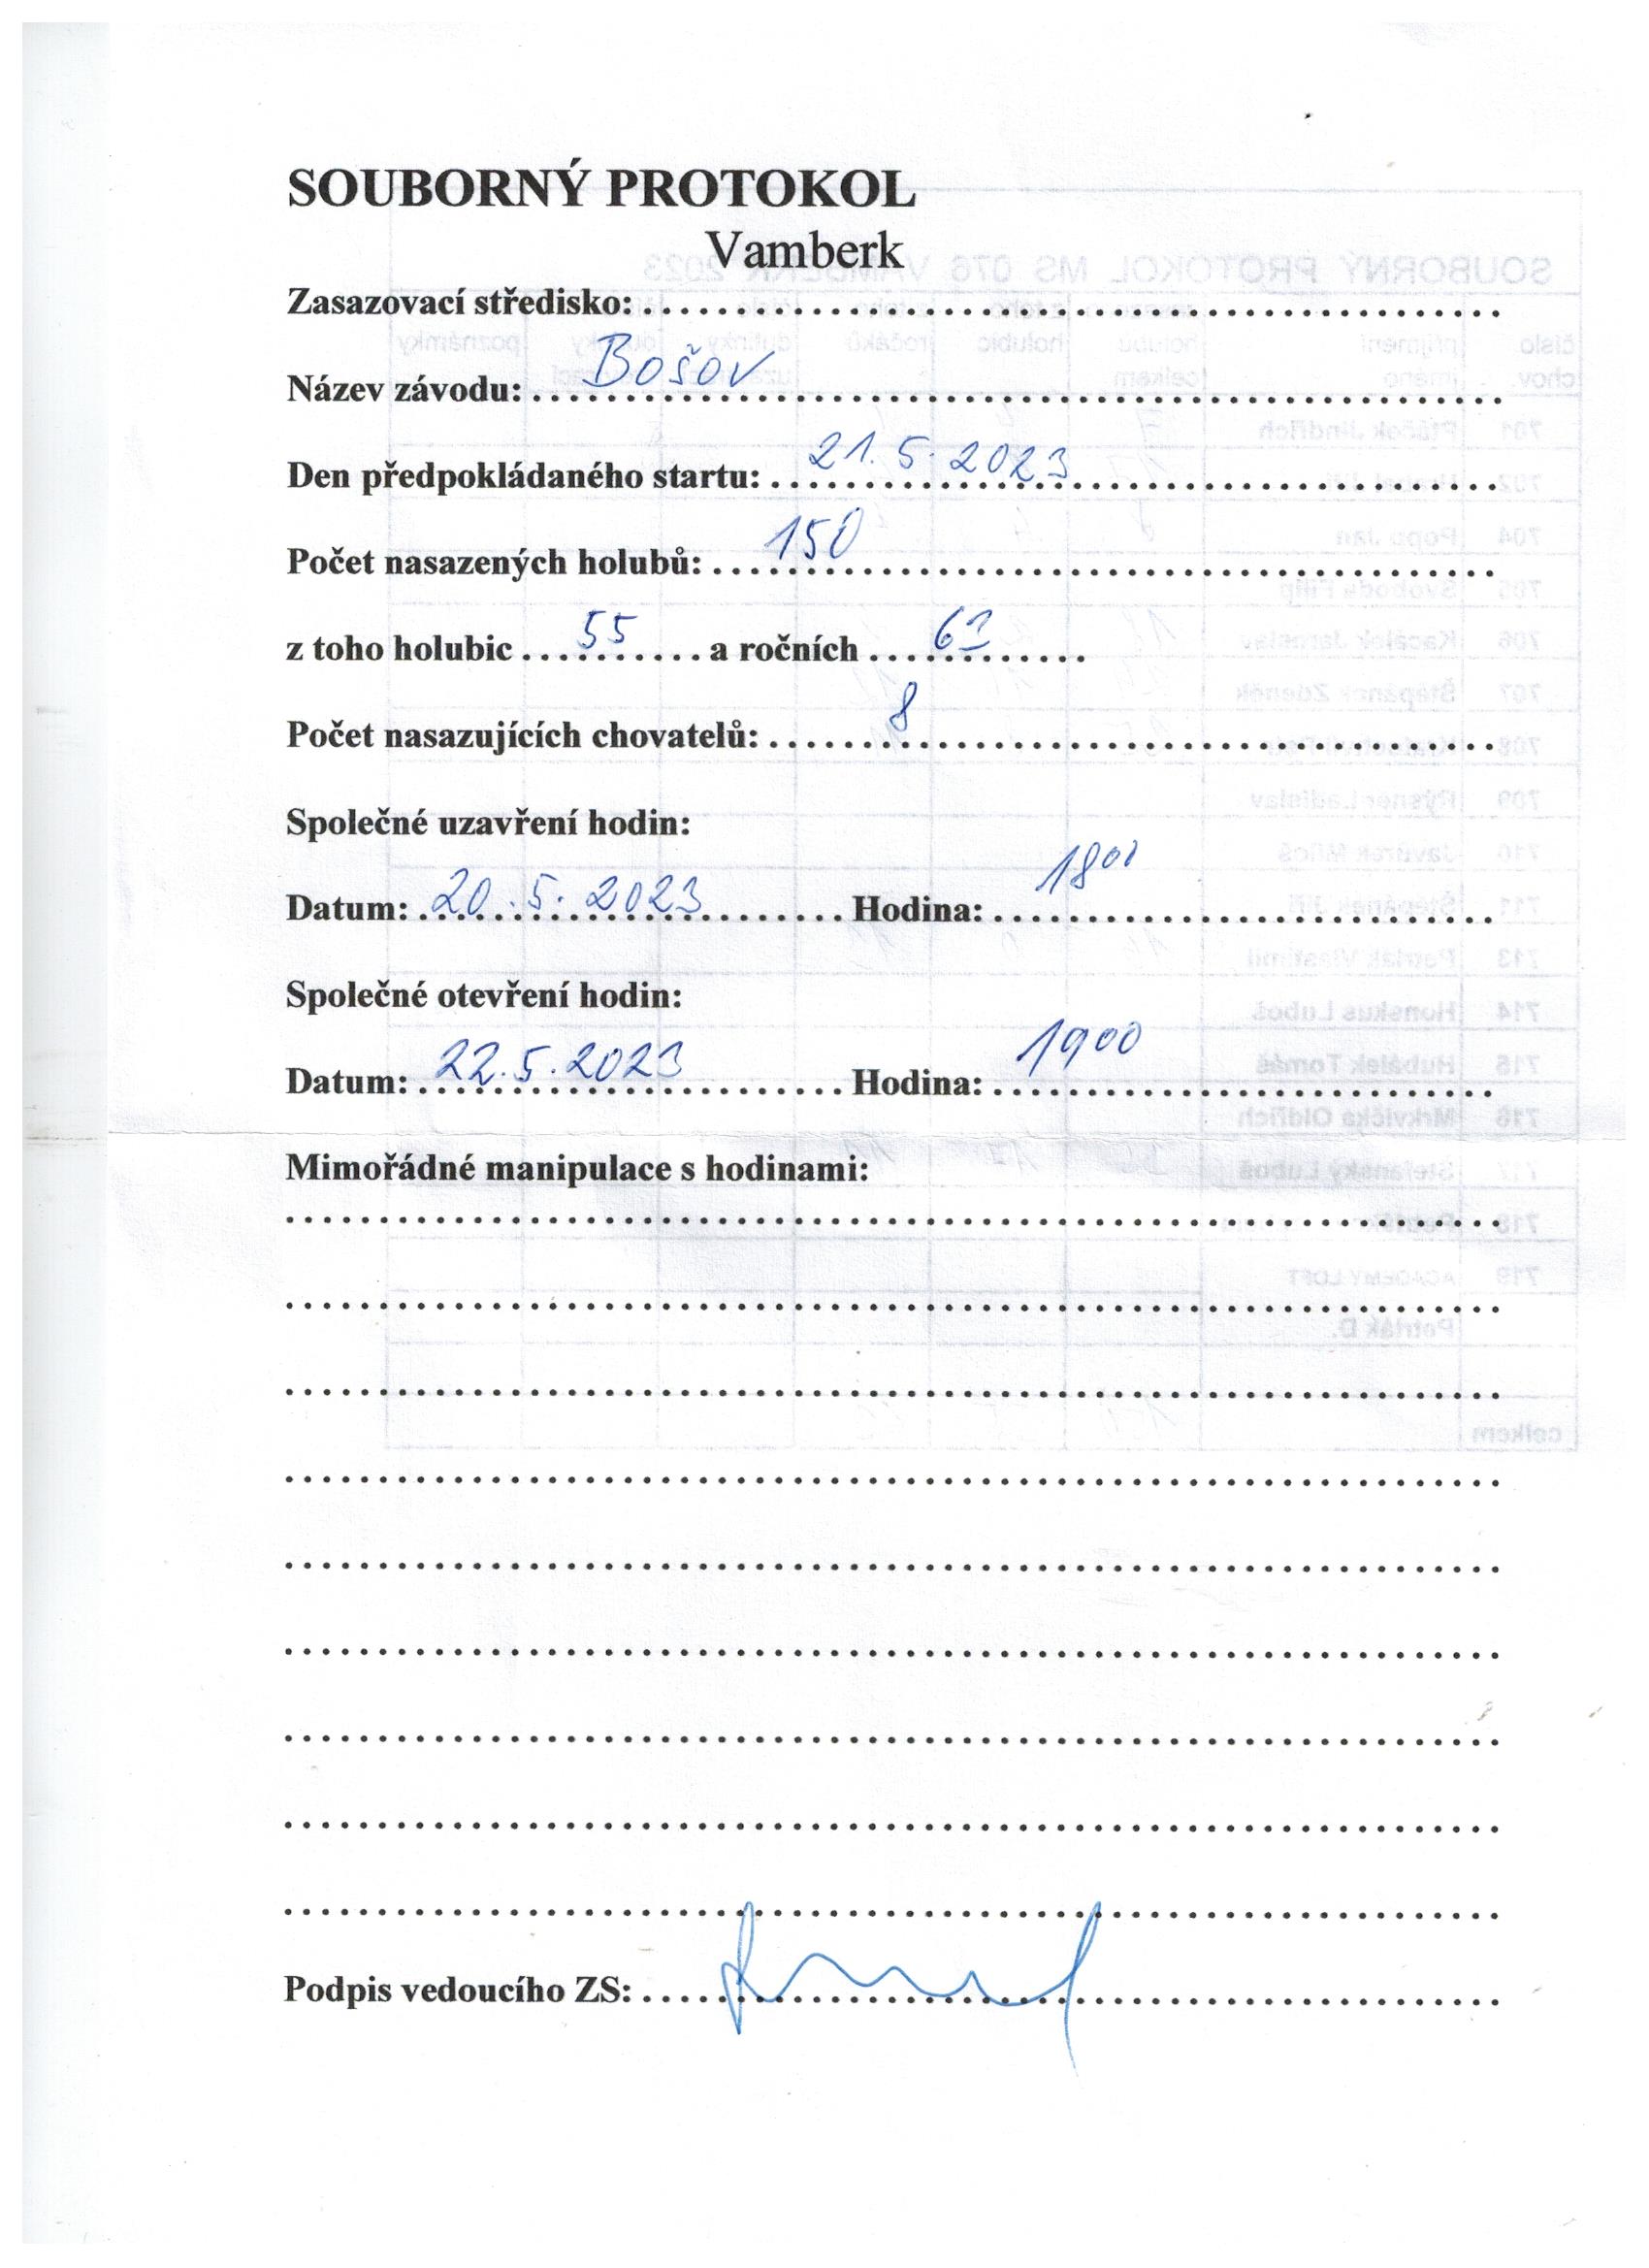 SOUBORNÝ PROTOKOL
Vamberk
Zasazovací středisko:
Název závodu: Bošov
Den předpokládaného startu: 21.5.2023
Počet nasazených holubů: 150
z toho holubic 55 a ročních 63
Počet nasazujících chovatelů: 8
Společné uzavření hodin:
Datum: 20.5.2023 Hodina: 1800
Společné otevření hodin:
Datum: 22.5.2023 Hodina: 1900
Mimořádné manipulace s hodinami:
Podpis vedoucího ZS: